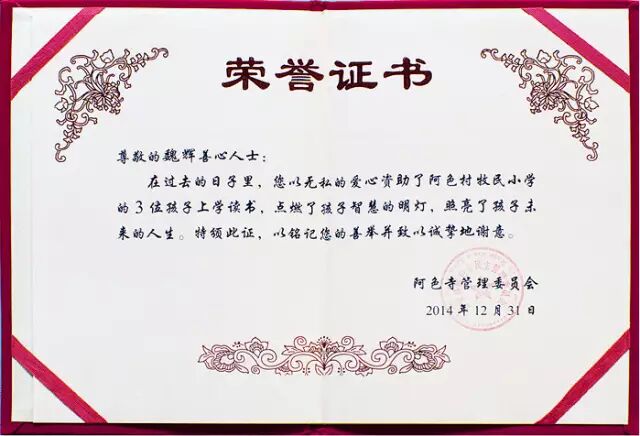 荣誉证书
尊敬的魏辉善心人士：
在过去的日子里，您以无私的爱心资助了阿色村牧民小学
的3位孩子上学读书，点燃了孩子智慧的明灯，照亮了孩子未
来的人生。特颁此证，以铭记您的善举并致以诚挚地谢意。
阿色寺管理委员会
2014年12月31日